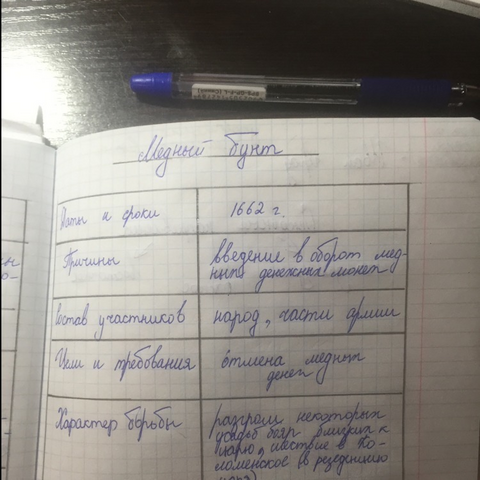 Медный бунт
Даты и сроки
1662 г.
Причины
введение в оборот мед-
ных денежных монет
Состав участников
народ, части армии
Цели и требования
отмена медных
денег
Характер борьбы
разгром некоторых
усадьб бояр близких к
царю, шествие в Ко-
ломенское (в резиденцию
царя)